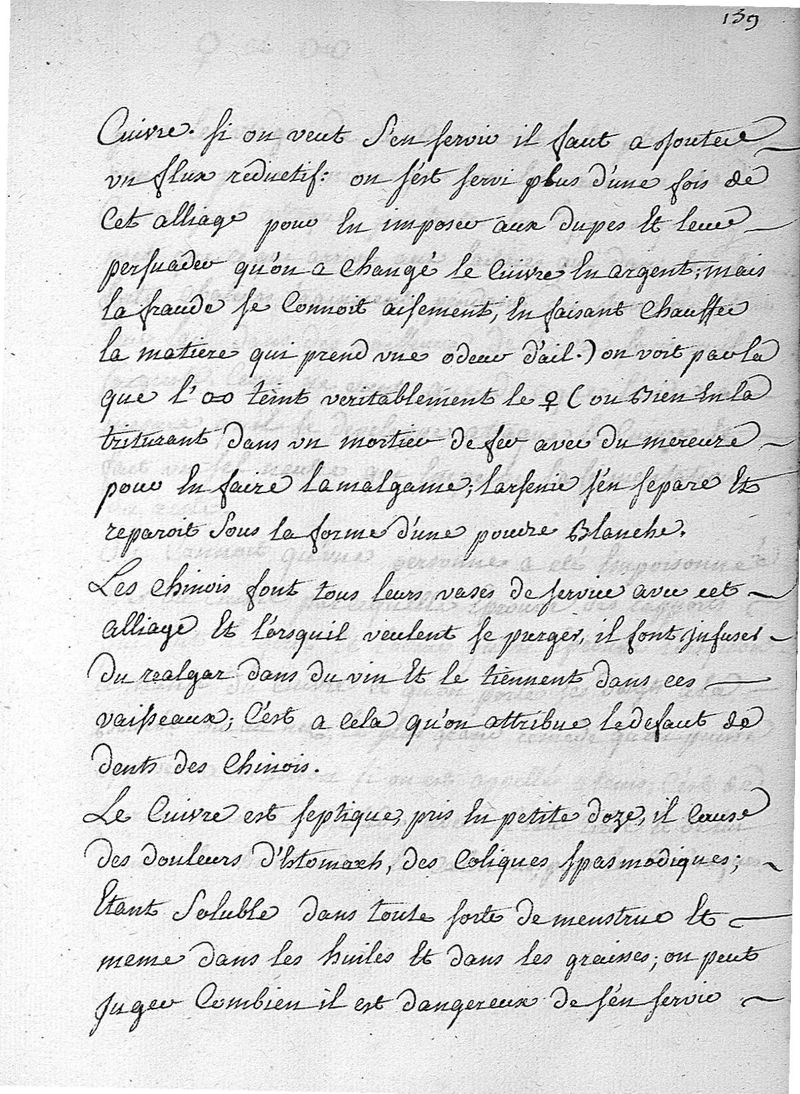 139
Cuivre. si on veut s'en servir il faut ajouter
un flux reductif: on s'est servi plus d'une fois de
Cet alliage pour en imposer aux dupes Et leur
persuader qu'on a changé le Cuivre En argent; mais
la fraude se Connoit aisement, En faisant Chauffer
la matiere qui prend une odeur d'ail.) on voit par la
que l' o-o teint veritablement le ♀ (ou Bien En la
triturant dans un mortier de fer avec du mercure
pour En faire lamalgame; larsenic s'en separe Et
reparoit sous la forme d'une poudre Blanche.
Les chinois font tous leurs vases de service avec cet
alliage Et lorsquil veulent se purger, il font infuser
du realgar dans du vin Et le tiennent dans ces
vaisseaux; C'est a Cela qu'on attribue le defaut de
dents des Chinois.
Le Cuivre est septique, pris En petite doze, il Cause
des douleurs d'Estomach, des Coliques spasmodiques;
Etant Soluble dans toute sorte de menstrue Et
meme dans les huiles Et dans les graisses; on peut
Juger Combien il est dangereux de s'en servir